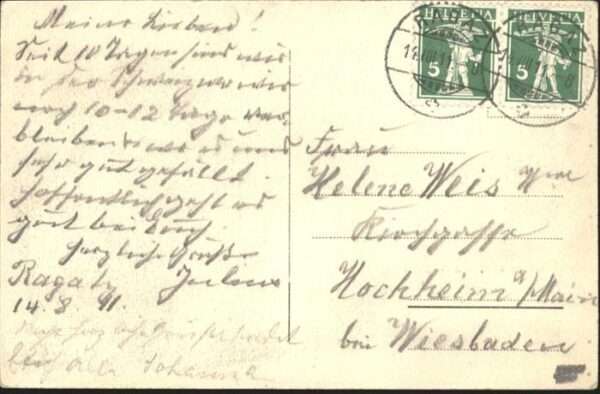 Meine Lieben!
Seit 10 Tagen sind wir
in der Schweiz wo wir
noch 10-12 Tage ver-
bleiben & wo es uns
sehr gut gefällt.
Hoffentlich geht es
gut bei Euch.
Herzliche Grüße
Ragatz Julius
14.8.11.
Johanna
HELVETIA HELVETIA
5 5
RAGAZ
Frau
Helene Weis Wwe
Kirchgasse
Hochheim a/Main
bei Wiesbaden